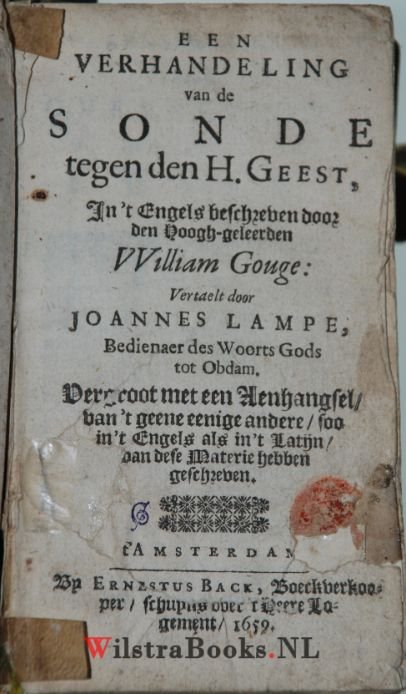 EEN
VERHANDELING
van de
SONDE
tegen den H. GEEST,
In 't Engels beschreven door
den Hoogh-geleerden
VVilliam Gouge:
Vertaelt door
JOANNES LAMPE,
Bedienaer des Woorts Gods
tot Obdam.
Vergroot met een Aenhangsel/
van 't geene eenige andere/ soo
in 't Engels als in 't Latijn/
van dese Materie hebben
geschreven.
t'AMSTERDAM
By ERNESTUS BACK, Boeckverkoo-
per/ schuyns over 't Heere Lo-
gement/ 1659.
WilstraBooks.NL